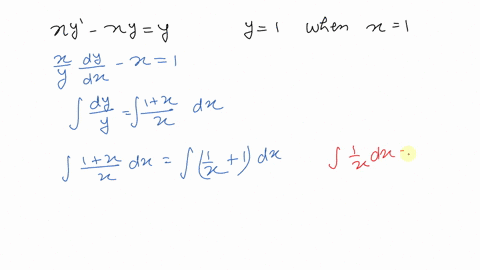 xy' - xy = y    y = 1 when x = 1
x/y dy/dx - x = 1
∫ dy/y = ∫ (1+x)/x dx
∫ (1+x)/x dx = ∫ (1/x + 1) dx    ∫ 1/x dx -